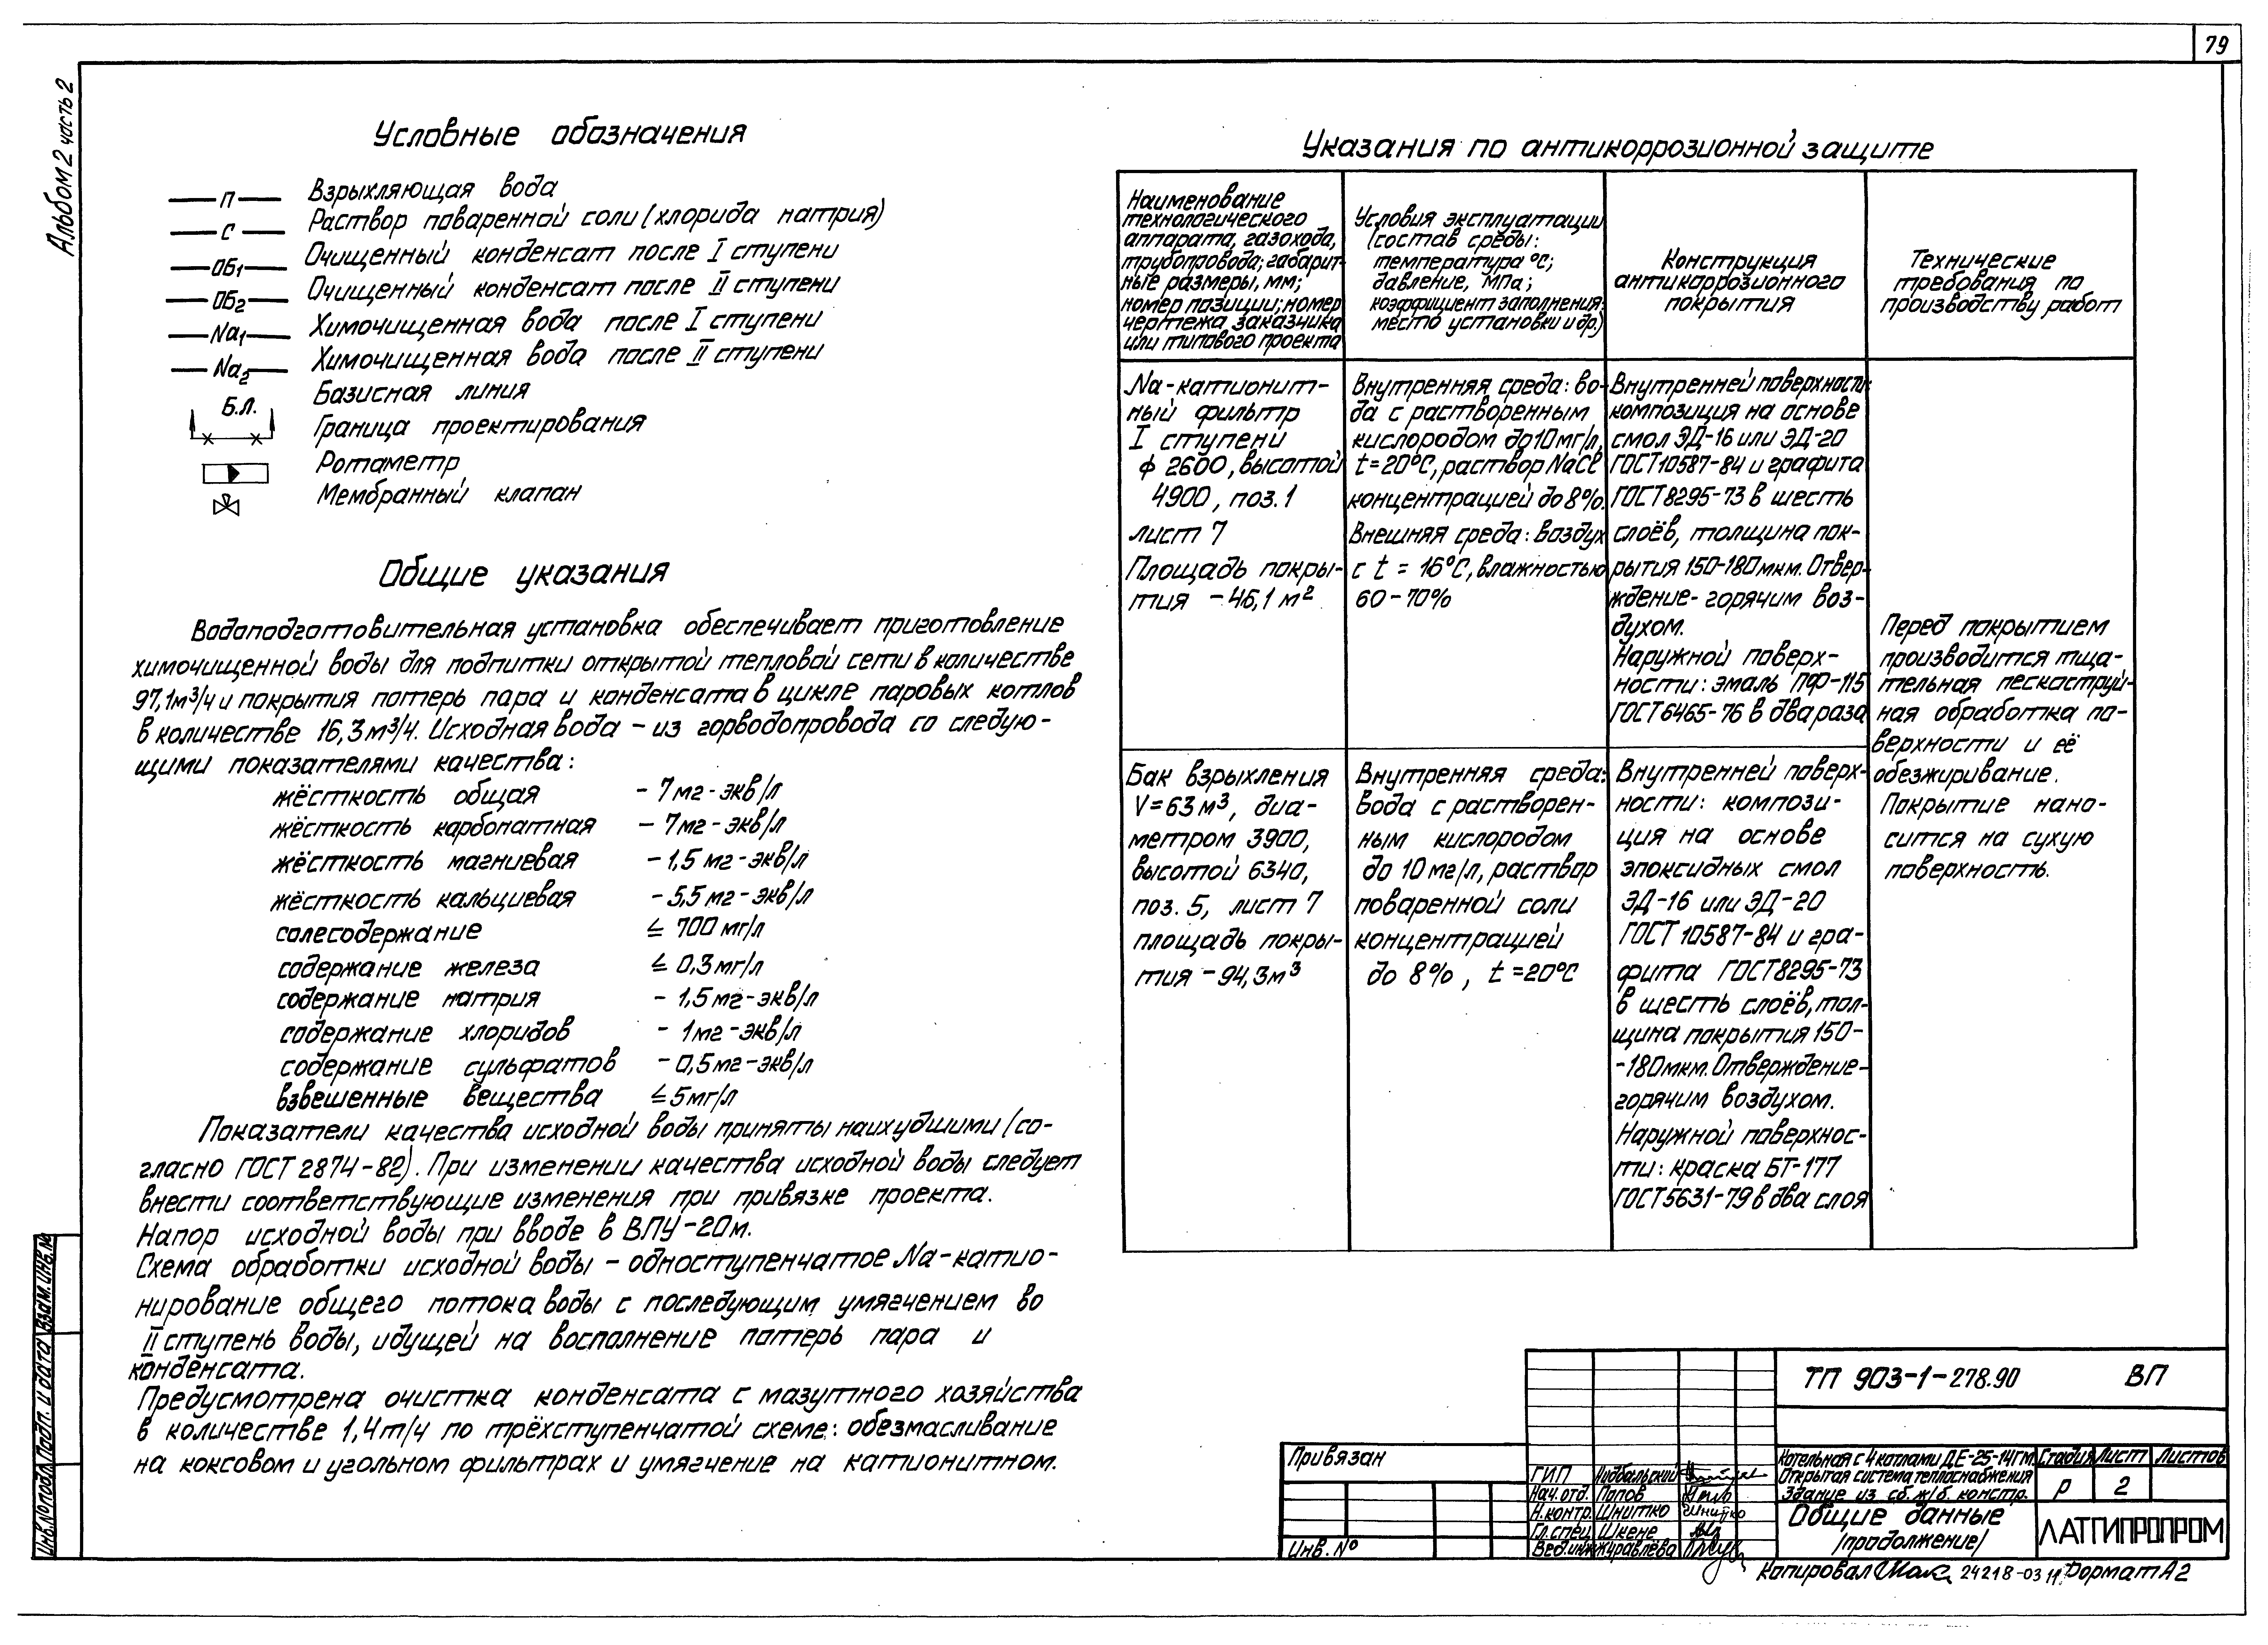 79
Альбом 2 часть 2
Условные обозначения
П Взрыхляющая вода
С Раствор поваренной соли (хлорида натрия)
ОБ1 Очищенный конденсат после I ступени
ОБ2 Очищенный конденсат после II ступени
Na1 Химочищенная вода после I ступени
Na2 Химочищенная вода после II ступени
Б.Л. Базисная линия
Граница проектирования
Ротаметр
Мембранный клапан
Общие указания
Водоподготовительная установка обеспечивает приготовление
химочищенной воды для подпитки открытой тепловой сети в количестве
97,1м³/ч и покрытия потерь пара и конденсата в цикле паровых котлов
в количестве 16,3 м³/ч. Исходная вода – из горводопровода со следую-
щими показателями качества:
жёсткость общая – 7мг-экв/л
жёсткость карбонатная – 7мг-экв/л
жёсткость магниевая – 1,5 мг-экв/л
жёсткость кальциевая – 5,5 мг-экв/л
солесодержание ≤ 700 мг/л
содержание железа ≤ 0,3 мг/л
содержание натрия – 1,5 мг-экв/л
содержание хлоридов – 1мг-экв/л
содержание сульфатов – 0,5 мг-экв/л
взвешенные вещества ≤ 5мг/л
Показатели качества исходной воды приняты наихудшими (со-
гласно ГОСТ 2874-82). При изменении качества исходной воды следует
внести соответствующие изменения при привязке проекта.
Напор исходной воды при вводе в ВПУ-20м.
Схема обработки исходной воды – одноступенчатое Na-катио-
нирование общего потока воды с последующим умягчением во
II ступень воды, идущей на восполнение потерь пара и
конденсата.
Предусмотрена очистка конденсата с мазутного хозяйства
в количестве 1,4т/ч по трёхступенчатой схеме: обезмасливание
на коксовом и угольном фильтрах и умягчение на катионитном.
Указания по антикоррозионной защите
Наименование
технологического
аппарата, газохода,
трубопровода; габарит-
ные размеры, мм;
номер позиции; номер
чертежа заказчика
или типового проекта
Условия эксплуатации
(состав среды:
температура °С;
давление, МПа;
коэффициент заполнения;
место установки и др.)
Конструкция
антикоррозионного
покрытия
Технические
требования по
производству работ
Na-катионит-
ный фильтр
I ступени
ф 2600, высотой
4900, поз.1
лист 7
Площадь покры-
тия – 46,1 м²
Внутренняя среда: во-
да с растворенным
кислородом до 10мг/л,
t=20°C, раствор NaCl
концентрацией до 8%.
Внешняя среда: воздух
с t = 16°C, влажностью
60-70%
Внутренней поверхности
композиция на основе
смол ЭД-16 или ЭД-20
ГОСТ10587-84 и графита
ГОСТ8295-73 в шесть
слоёв, толщина пок-
рытия 150-180мкм. Отвер-
ждение- горячим воз-
духом.
Наружной поверх-
ности: эмаль ПФ-115
ГОСТ6465-76 в два раза
Перед покрытием
производится тща-
тельная пескоструй-
ная обработка по-
верхности и её
обезжиривание.
Покрытие нано-
сится на сухую
поверхность.
Бак взрыхления
V=63 м³, диа-
метром 3900,
высотой 6340,
поз. 5, лист 7
площадь покры-
тия – 94,3м³
Внутренняя среда:
вода с растворен-
ным кислородом
до 10 мг/л, раствор
поваренной соли
концентрацией
до 8%, t=20°C
Внутренней поверх-
ности: компози-
ция на основе
эпоксидных смол
ЭД-16 или ЭД-20
ГОСТ 10587-84 и гра-
фита ГОСТ8295-73
в шесть слоёв, тол-
щина покрытия 150-
-180мкм. Отверждение-
горячим воздухом.
Наружной поверхнос-
ти: краска БТ-177
ГОСТ5631-79 в два слоя
Взам. инв. №
Подп. и дата
Инв. № подл.
Привязан
Инв. №
ГИП
Нач. отд. Попов
Н.контр. Шнитко
Гл. спец. Шкене
Вед. инж. Журавлёва
ТП 903-1-278.90 ВП
Котельная с 4 котлами ДЕ-25-14ГМ.
Открытая система теплоснабжения
Здание из сб. ж/б. констр.
Стадия Лист Листов
Р 2
Общие данные
/продолжение/
ЛАТГИПРОПРОМ
Копировал 24218-03 Формат А2